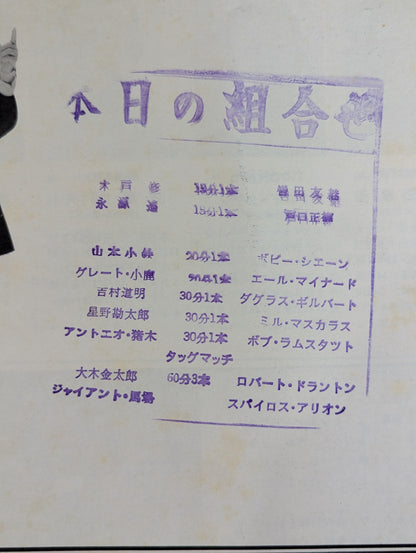 本日の組合せ
木戸 修 15分1本
永源 遙 15分1本 戸口正徳
山本小鉄 20分1本 ボビー・シエーン
グレート・小鹿 20分1本 エール・マイナード
吉村道明 30分1本 ダグラス・ギルバート
星野勘太郎 30分1本 ミル・マスカラス
アントエオ・猪木 30分1本 ボブ・ラムスタツト
タッグマッチ
大木金太郎 60分3本 ロバート・ドラントン
ジャイアント・馬場 スパイロス・アリオン